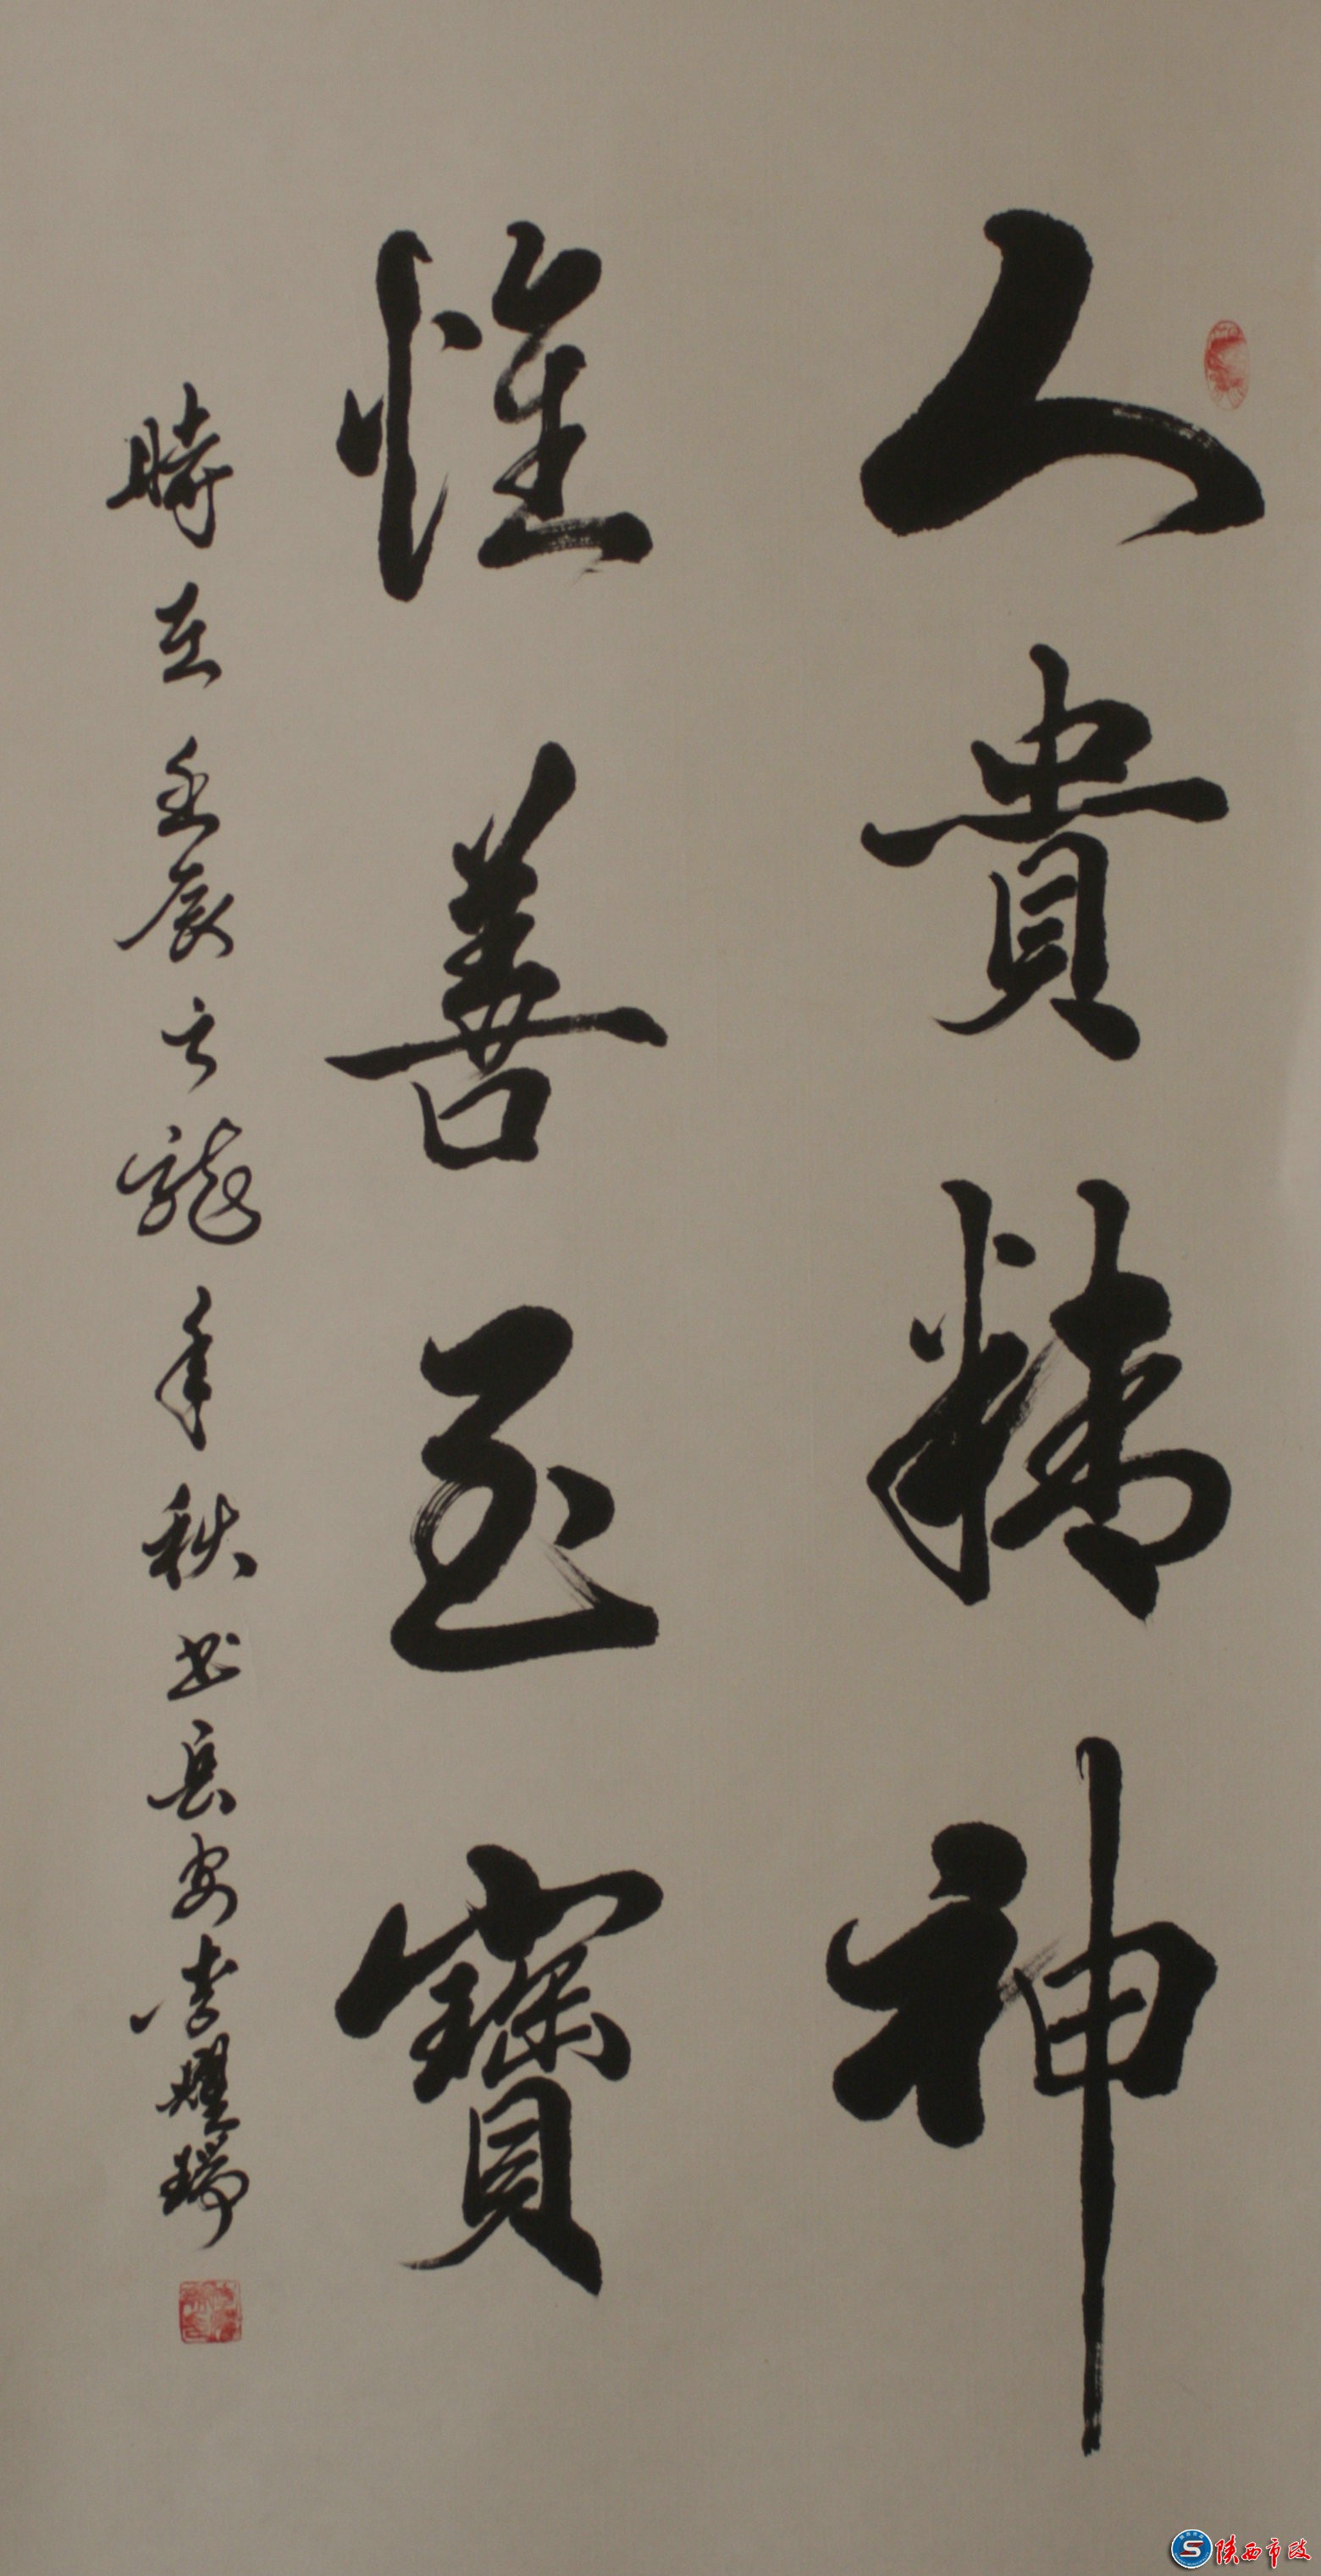 人貴精神
惟善至寶
時在壬辰之龍年秋書長安李耀瑞
陕西市政